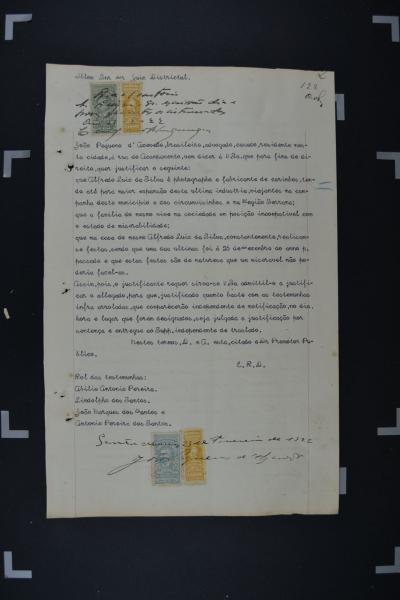 Illmo Snr snr Juiz Districtal.
João Pequeno d'Azevedo, brasileiro, advogado, casado, residente nes-
ta cidade, á rua do Acampamento, vem dizer á V.Sa. que para fins de di-
reito, quer justificar o seguinte:
que Alfredo Luiz da Silva é photographo e fabricante de carimbos, ten-
do até para maior expansão desta ultima industria, viajantes na cam-
panha deste municipio e dos circumvisinhos e na Região Serrana;
que a familia do mesmo vive na sociedade em posição incompativel com
o estado de miserabilidade;
que na casa do mesmo Alfredo Luiz da Silva, constantemente, realisam-
se festas, sendo que uma das ultimas foi á 25 de dezembro do anno p.
passado e que estas festas são de natureza que um miseravel não po-
deria fazel-as.
Assim, pois, o justificante requer sirva-se V.Sa admittil-o a justifi-
car o allegado, para que, justificado quanto baste com as testemunhas
infra arroladas, que comparecerão independente de notificação, no dia,
hora e lugar que forem designados, seja julgada a justificação por
sentença e entregue ao Supp. independente de traslado.
Nestes termos, D. e A. esta, citado o Dr Promotor Pu-
blico.
E. R. D.
Rol das testimunhas:
Abilio Antonio Pereira.
Lindolpho dos Santos.
João Marques dos Santos e
Antonio Pereira dos Santos.
Fevereiro de 192